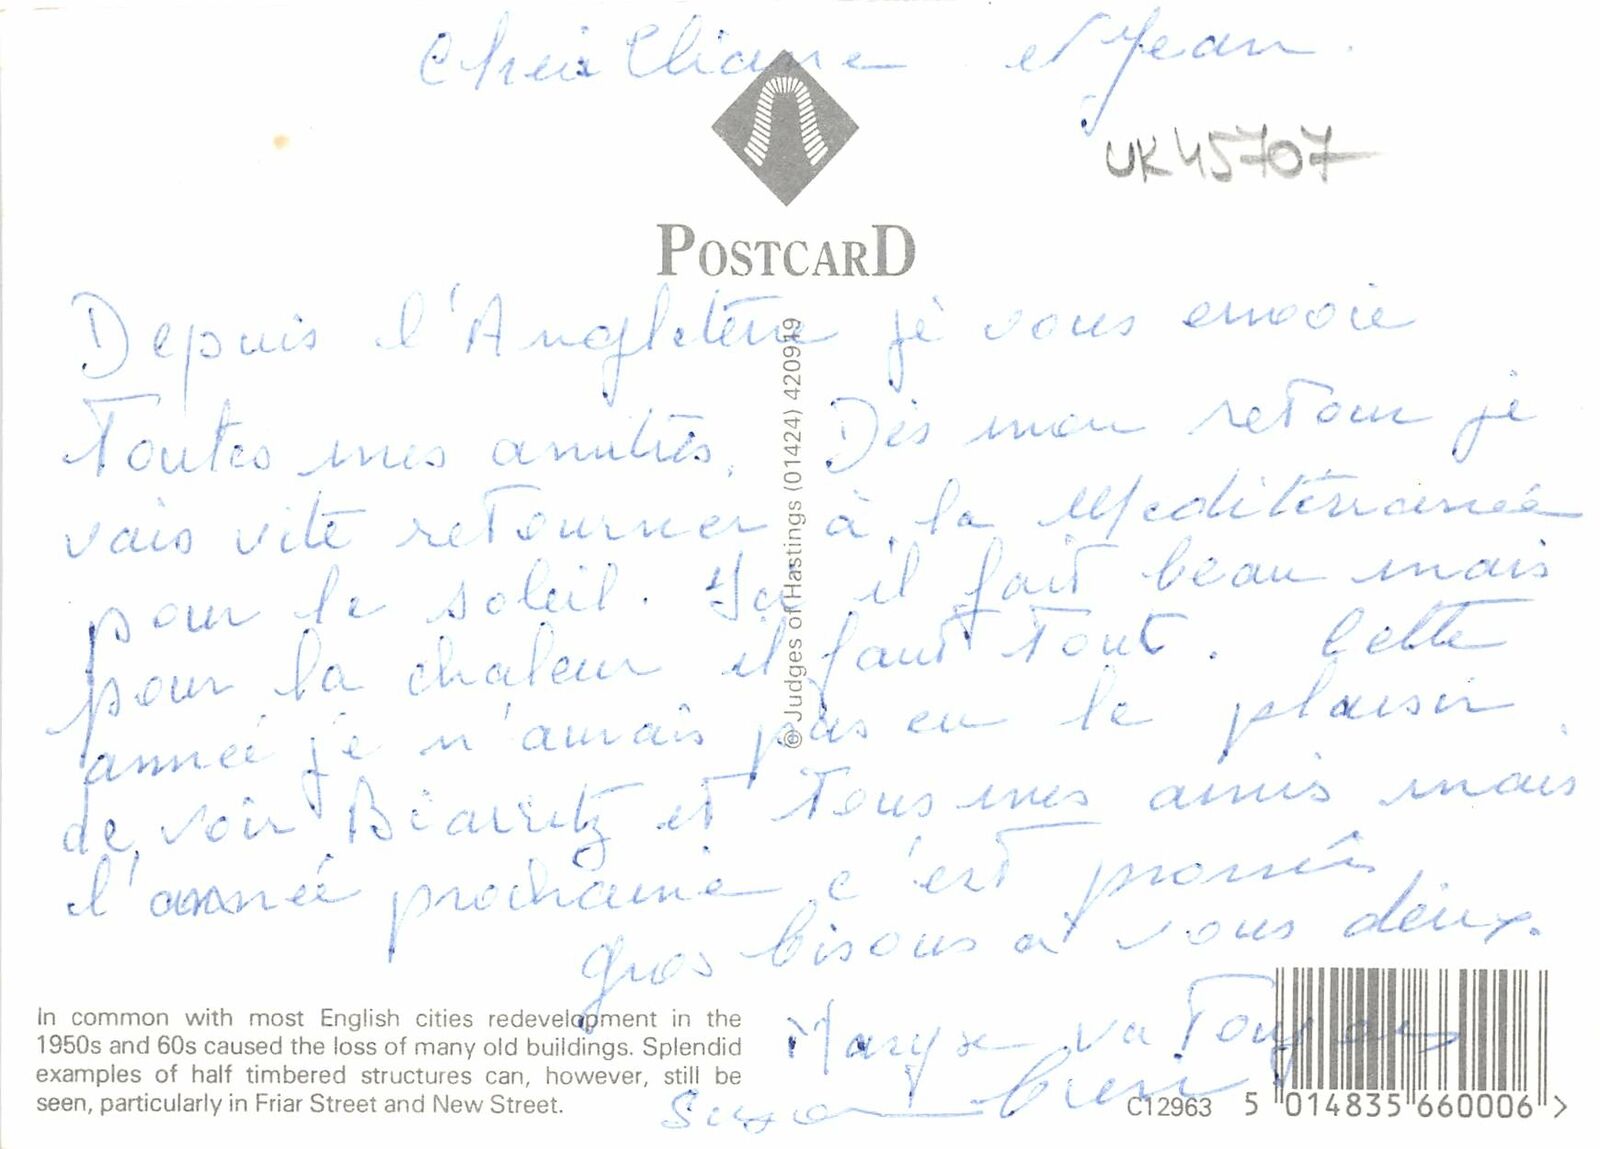 Cher Eliane et Jean.
UK45707
POSTCARD
Depuis l'Angletère je vous envoie
toutes mes amitiés. Dès mon retour je
vais vite retourner à la Mediterranée
pour le soleil. Ici il fait beau mais
pour la chaleur il faut tout. Cette
année je n'aurais pas eu le plaisir
de voir Biarritz et tous mes amis mais
l'année prochaine c'est promis,
gros bisous à vous deux.
Maryse va toujours
bien
© Judges of Hastings (01424) 420919
In common with most English cities redevelopment in the
1950s and 60s caused the loss of many old buildings. Splendid
examples of half timbered structures can, however, still be
seen, particularly in Friar Street and New Street.
C12963
5 014835 660006 >